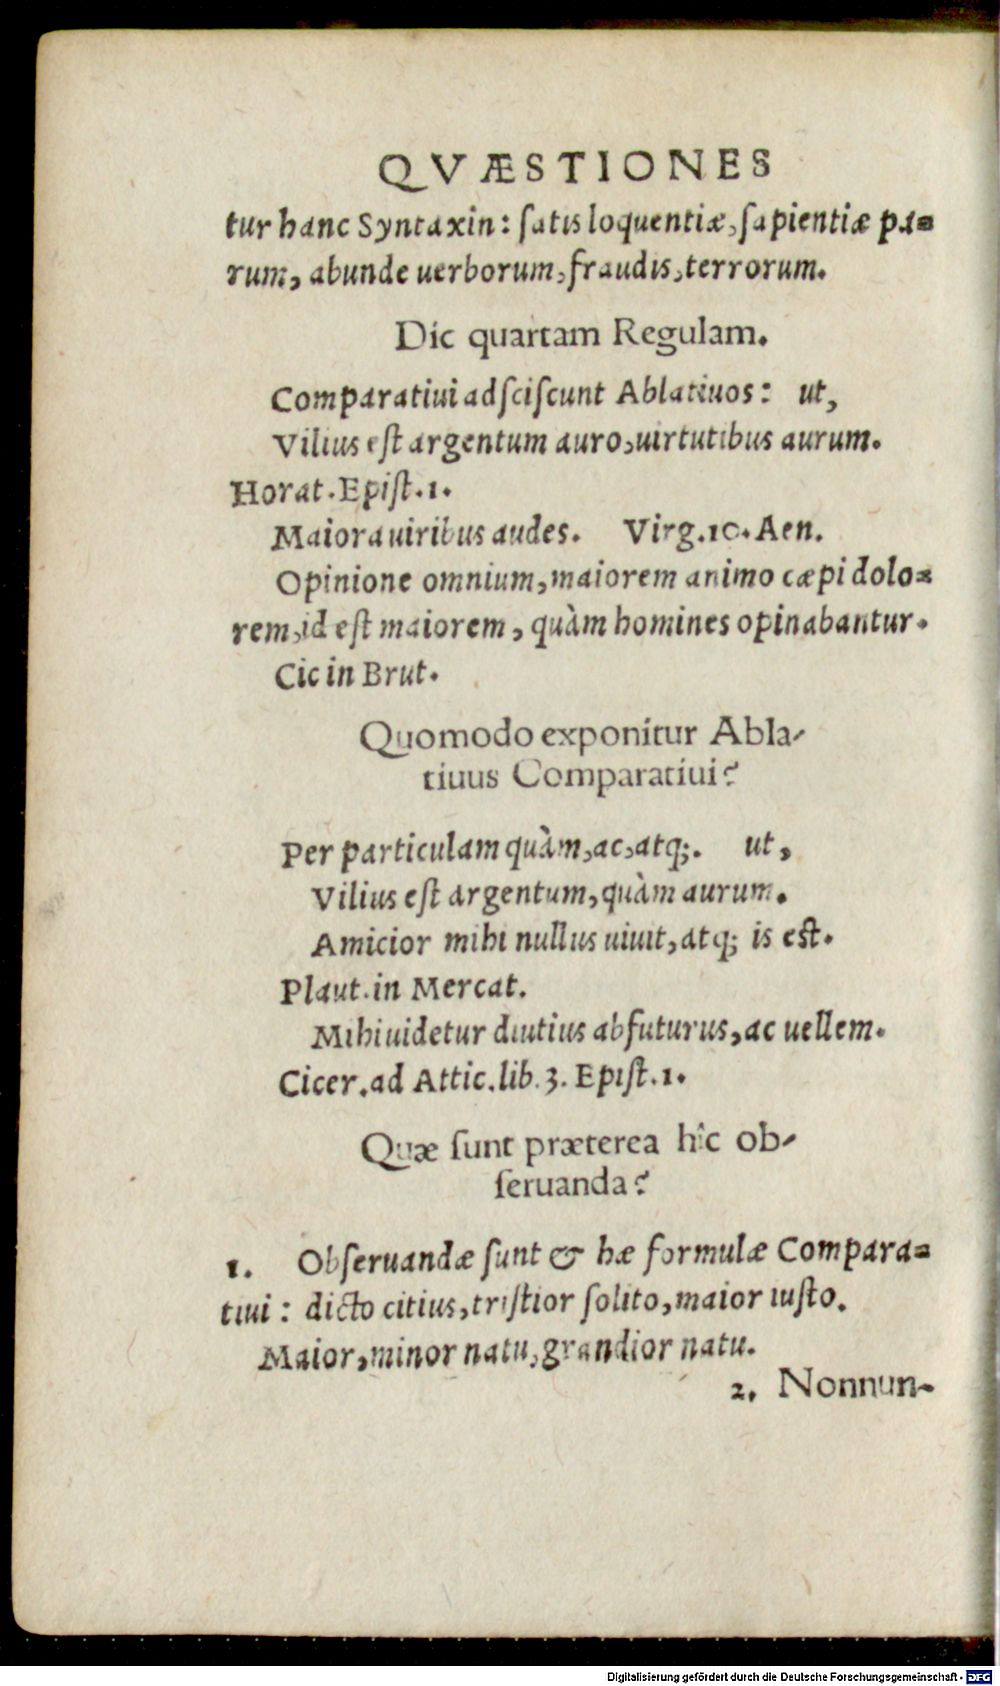 QVÆSTIONES
tur hanc Syntaxin: ſatis loquentiæ, ſapientiæ pa-
rum, abunde uerborum, fraudis, terrorum.
Dic quartam Regulam.
Comparatiui adſciſcunt Ablatiuos: ut,
Vilius eſt argentum auro, uirtutibus aurum.
Horat. Epiſt. 1.
Maiora uiribus audes. Virg. 10. Aen.
Opinione omnium, maiorem animo cæpi dolo-
rem, id eſt maiorem, quàm homines opinabantur.
Cic in Brut.
Quomodo exponitur Abla-
tiuus Comparatiui?
Per particulam quàm, ac, atq;. ut,
Vilius eſt argentum, quàm aurum.
Amicior mihi nullus uiuit, atq; is est.
Plaut. in Mercat.
Mihi uidetur diutius abfuturus, ac uellem.
Cicer. ad Attic. lib. 3. Epiſt. 1.
Quæ ſunt præterea hîc ob-
ſeruanda?
1. Obſeruandæ ſunt & hæ formulæ Compara-
tiui: dicto citius, triſtior ſolito, maior iuſto.
Maior, minor natu, grandior natu.
2. Nonnun-
Digitalisierung gefördert durch die Deutsche Forschungsgemeinschaft - DFG